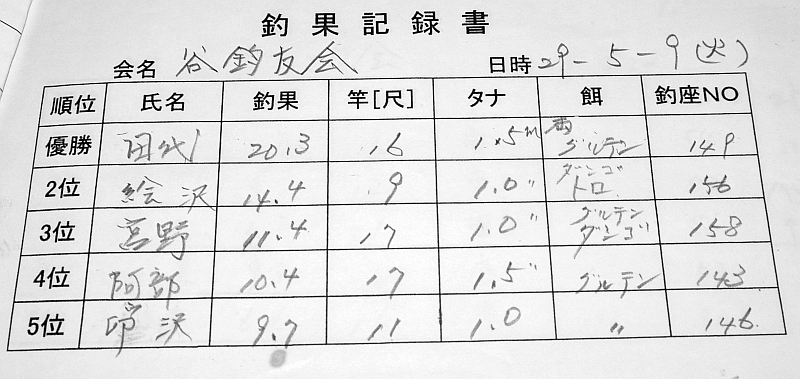 釣果記録書
会名 谷釣友会 日時 29-5-9(火)
順位 氏名 釣果 竿[尺] タナ 餌 釣座NO
優勝 田代 20.3 16 1.5m 両グルテン 149
2位 絵沢 14.4 9 1.0〃 ダンゴ トロ 156
3位 宮野 11.4 17 1.0〃 グルテン ダンゴ 158
4位 阿部 10.4 17 1.5〃 グルテン 143
5位 沢 9.7 11 1.0 〃 146